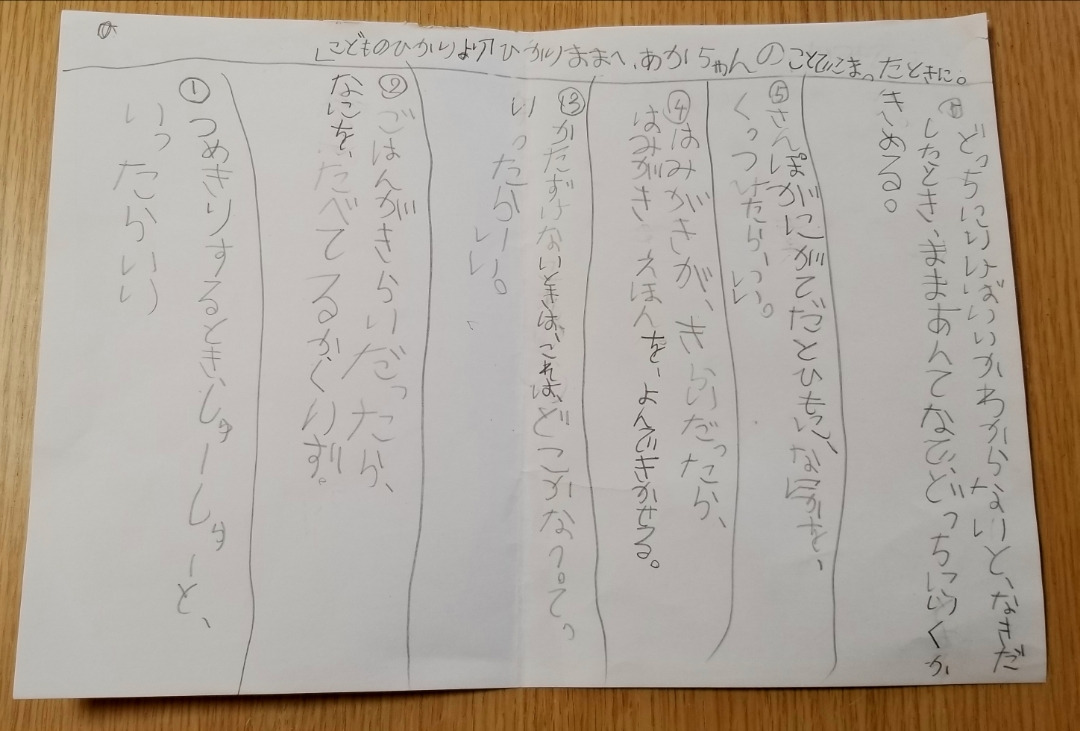 「こどものひかりより「ひかりままへ、あかちゃんのことでこまったときに。
⑥どっちにいけばいいかわからないと、なきだ
したとき、ままあんてなで、どっちにいくか
きめる。
⑤さんぽがにがてだとひもに、なにかを、
くっつけたら、いい。
④はみがきが、きらいだったら、
はみがきえほんを、よんできかせる。
③かたずけないときは、これは、どこかな?。て。
いったらいい。
②ごはんがきらいだったら、
なにを、たべてるかくいず。
①つめきりするとき、しゅーしゅーと、
いったらいい